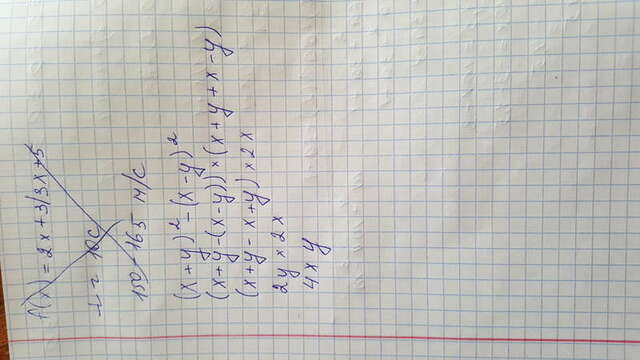 f(x) = 2x+3/3x+5
t = 10c
150 - 165 м/с
(x+y)² - (x-y)²
(x+y-(x-y)) × (x+y+x-y)
(x+y-x+y) × 2x
2y × 2x
4xy